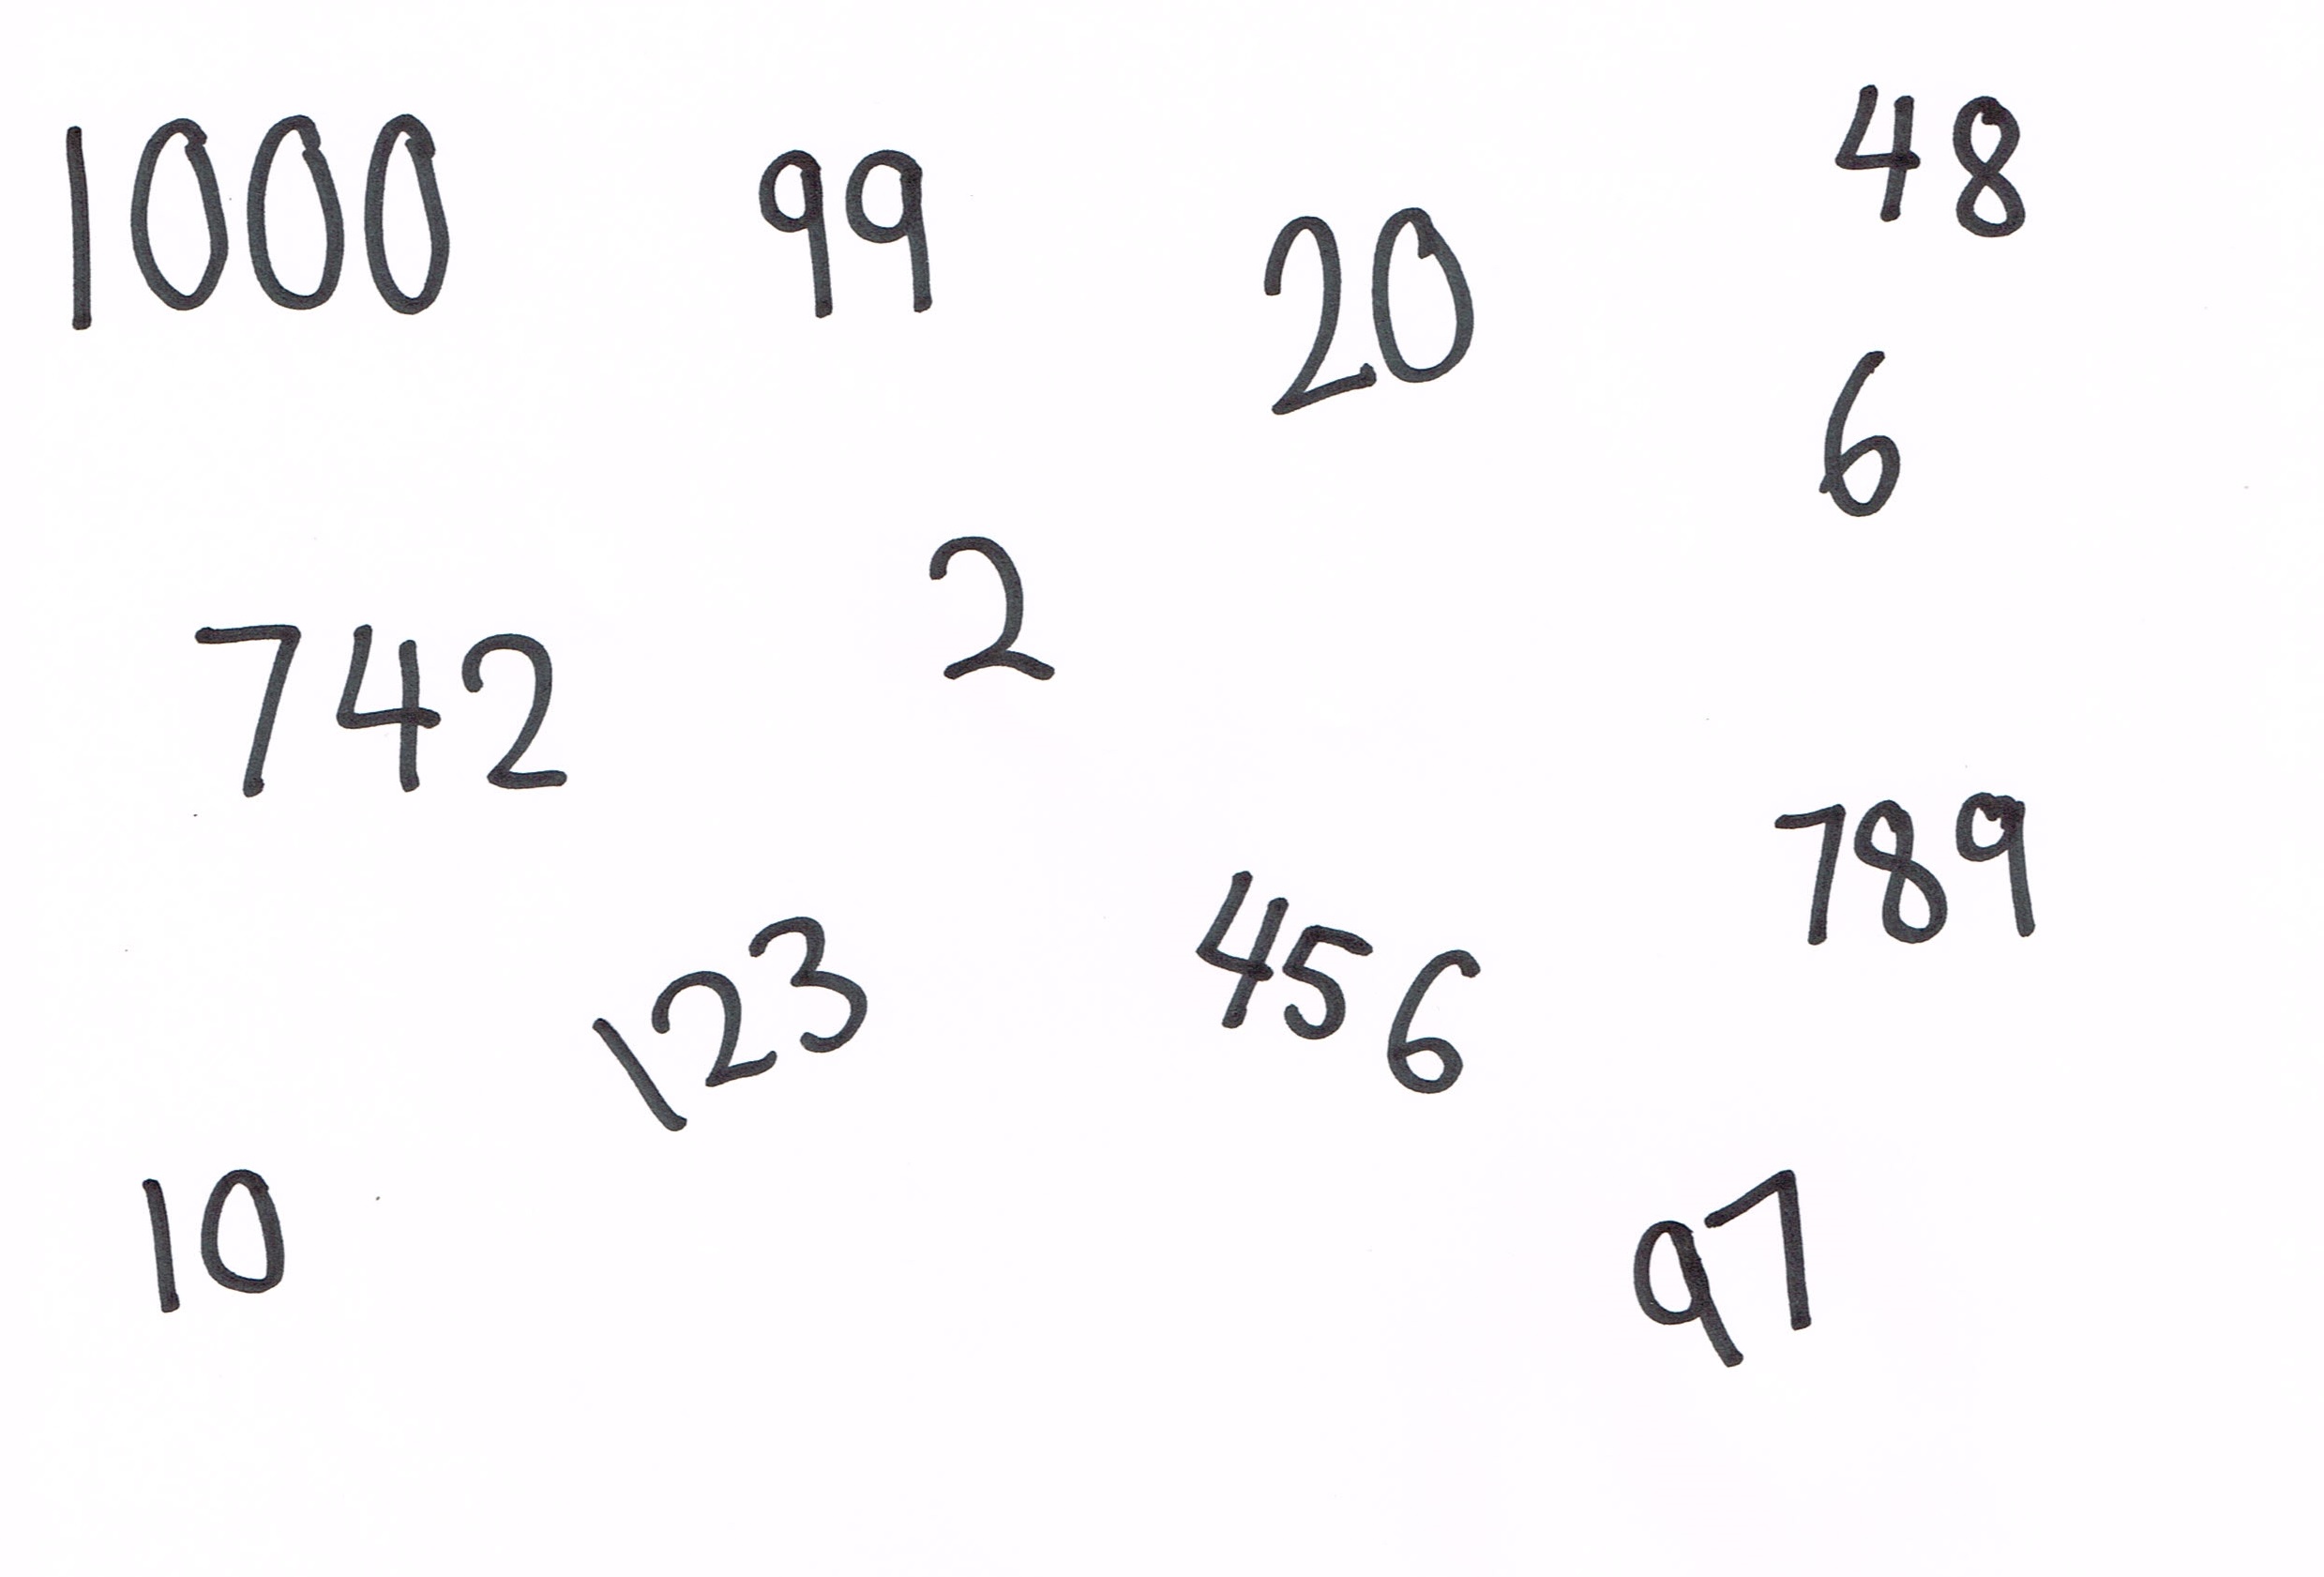 1000 99 20 48
6
742 2
789
123 456
10 97